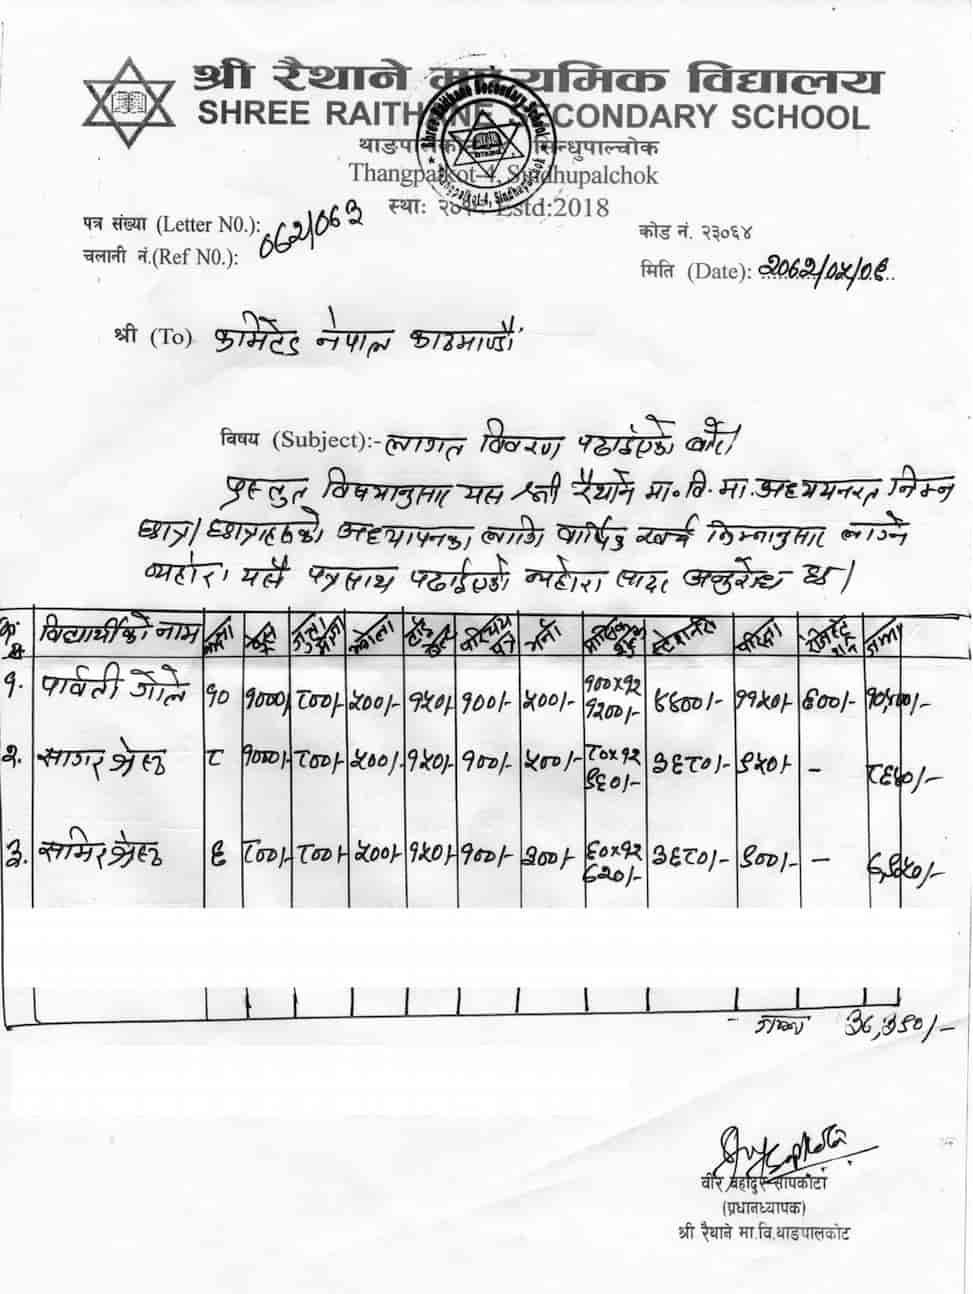 श्री रैथाने माध्यमिक विद्यालय
SHREE RAITHANE SECONDARY SCHOOL
थाङपालकोट सिन्धुपाल्चोक
Thangpalkot-4, Sindhupalchok
स्था: Estd:2018
Shree Raithane Secondary School
Thangpalkot-4, Sindhupalchok
पत्र संख्या (Letter N0.): ०६२/०६३
चलानी नं.(Ref N0.):
कोड नं. २३०६४
मिति (Date): २०६२/०५/०६
श्री (To) कमिटेड नेपाल काठमाण्डौं
विषय (Subject):- लागत विवरण पठाईएको बारे।
प्रस्तुत विषयानुसार यस श्री रैथाने मा.वि.मा अध्ययनरत निम्न
छात्र/छात्राहरुको अध्यापनका लागि वार्षिक खर्च निम्नानुसार लाग्ने
व्यहोरा यसै पत्रसाथ पठाईएको व्यहोरा सादर अनुरोध छ।
विद्यार्थीको नाम कक्षा जुत्ता झोला परिचय पत्र भर्ना मासिक शुल्क परिक्षा जम्मा
१. पार्वती १० १०००/- ८००/- ५००/- १५०/- १००/- ५००/- १००x१२ १२००/- ११५०/-
२. सागर श्रेष्ठ ८ १०००/- ८००/- ५००/- १५०/- १००/- ५००/- ८०x१२ ९६०/- ३६८०/- ९५०/- -
३. समिर श्रेष्ठ ६ ८००/- ८००/- ५००/- १५०/- १००/- ३००/- ६०x१२ ७२०/- ३६८०/- ९००/- -
जम्मा
वीर बहादुर सापकोटा
(प्रधानध्यापक)
श्री रैथाने मा.वि.थाङपालकोट